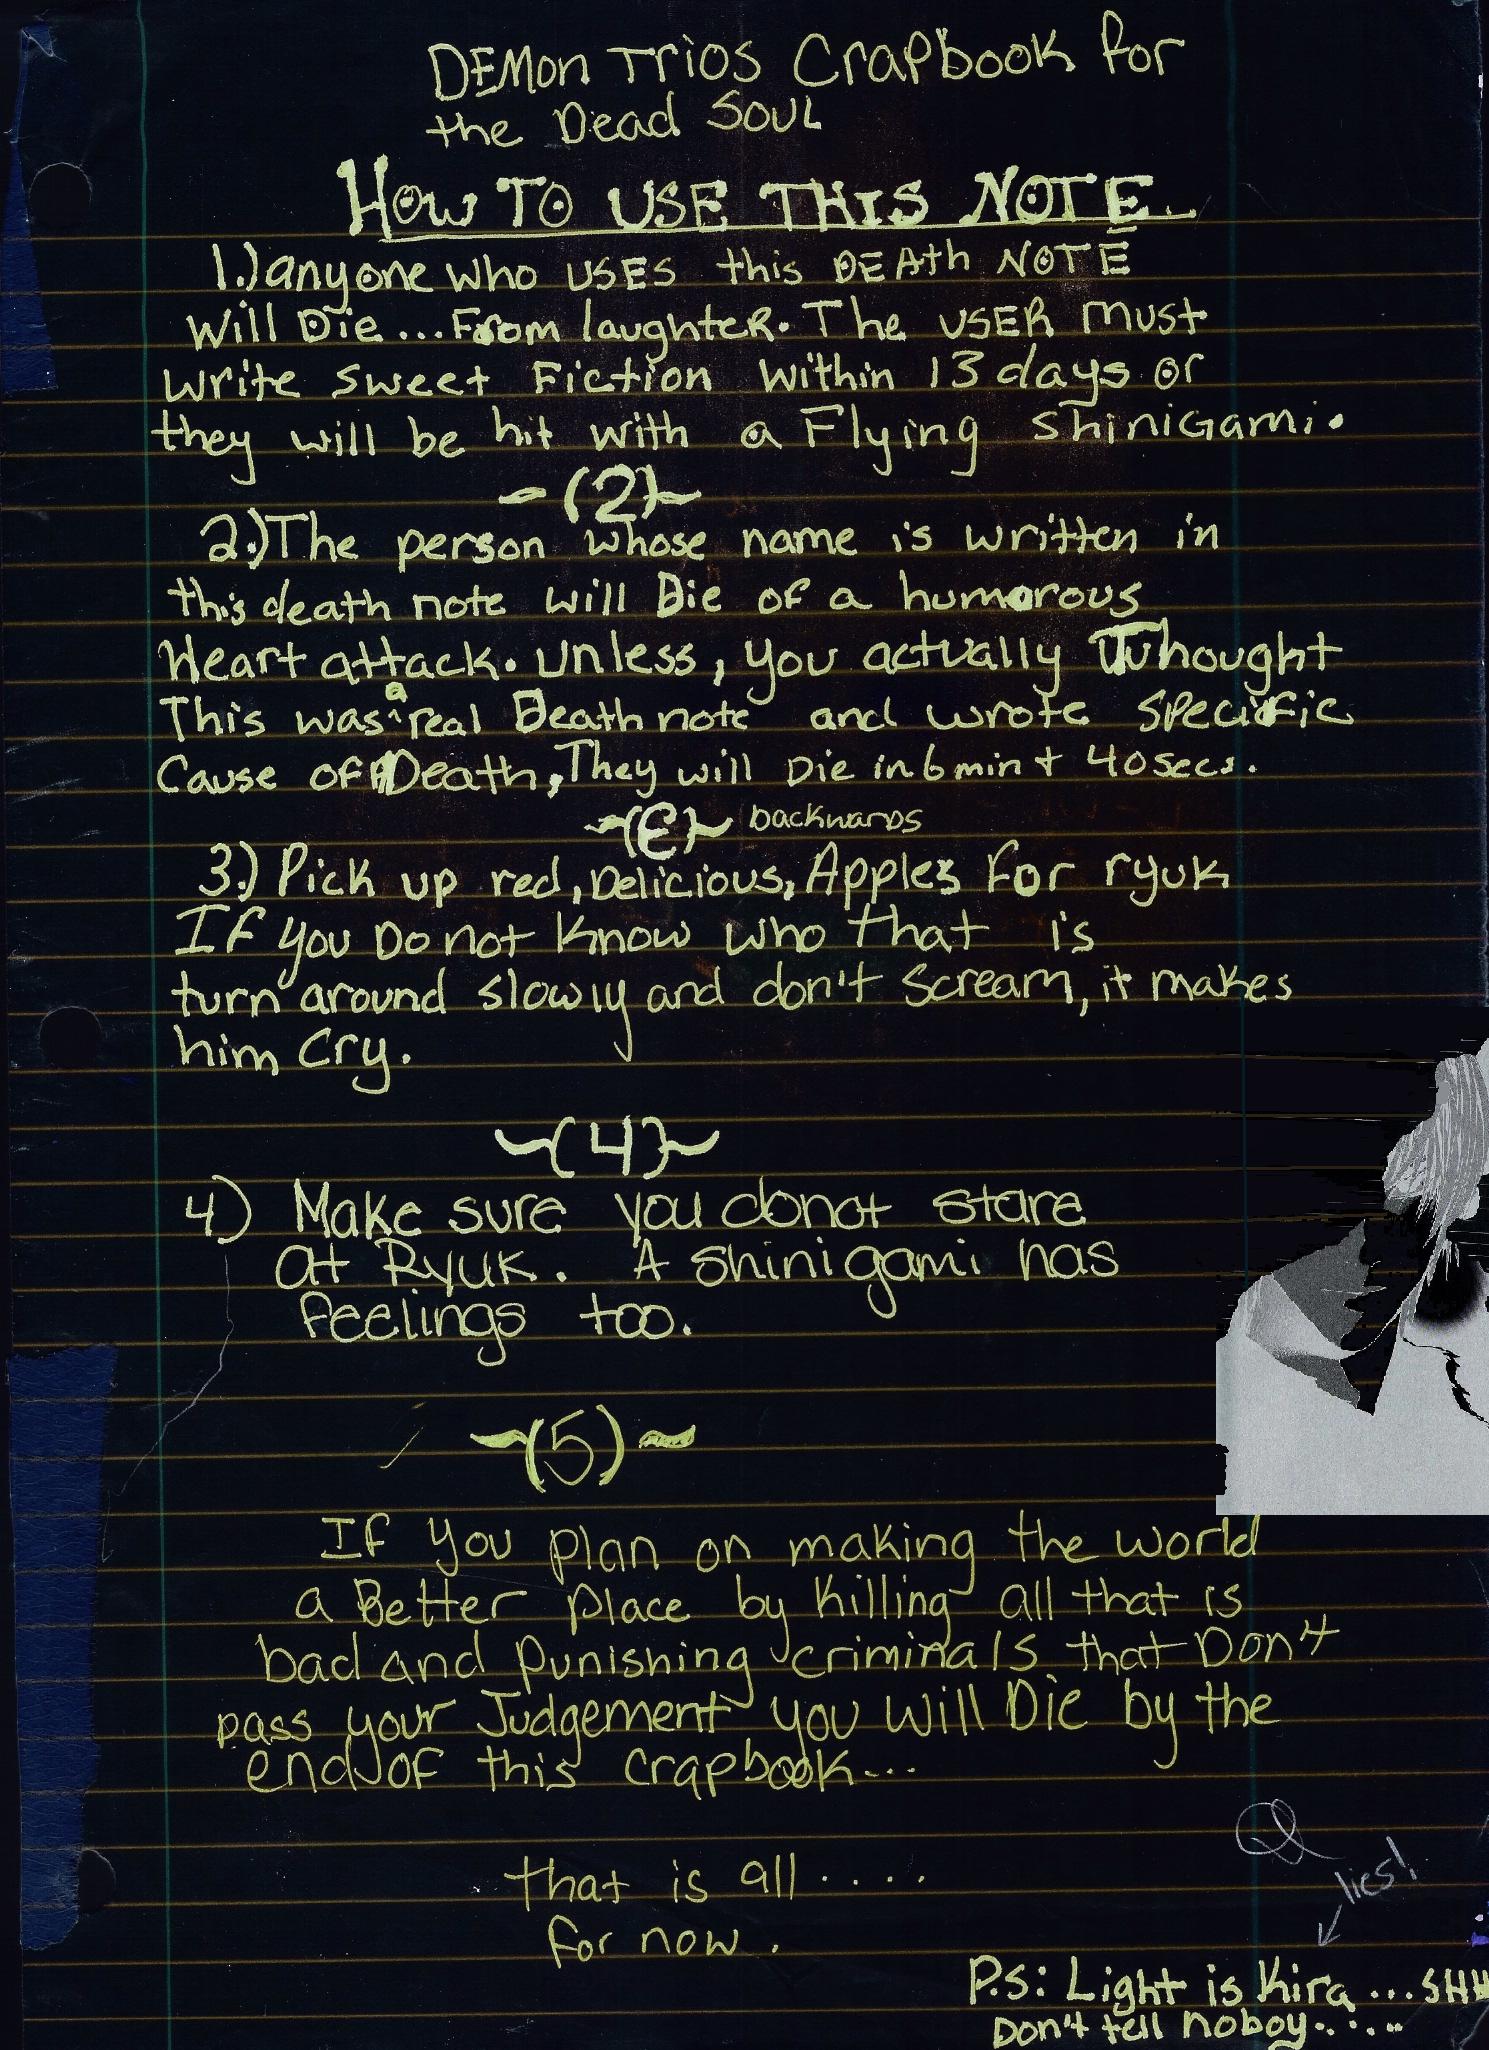 DEMON TRIOS Crapbook for
the Dead SOUL
HOW TO USE THIS NOTE
1.) anyone who USES this DEAth NOTE
Will Die... From laughteR. The USER must
write sweet Fiction within 13 days or
they will be hit with a Flying ShiniGami.
~(2)~
2.) The person whose name is written in
this death note will Die of a humorous
Heart attack. Unless, you actually Thought
This was a real Death note and wrote specific
Cause of Death, They will Die in 6 min + 40 secs.
~(Ɛ)~ backwards
3.) Pick up red, Delicious, Apples for ryuk
If you Do not Know who that is
turn around slowly and don't Scream, it makes
him Cry.
~(4)~
4) Make sure you donot stare
at Ryuk. A Shinigami has
feelings too.
~(5)~
If you plan on making the world
a Better place by killing all that is
bad and punishing criminals that Don't
pass your Judgement you will Die by the
end of this crapbook...
that is all.....
for now.
lies!
P.S: Light is Kira ... SHH
Don't tell noboy......